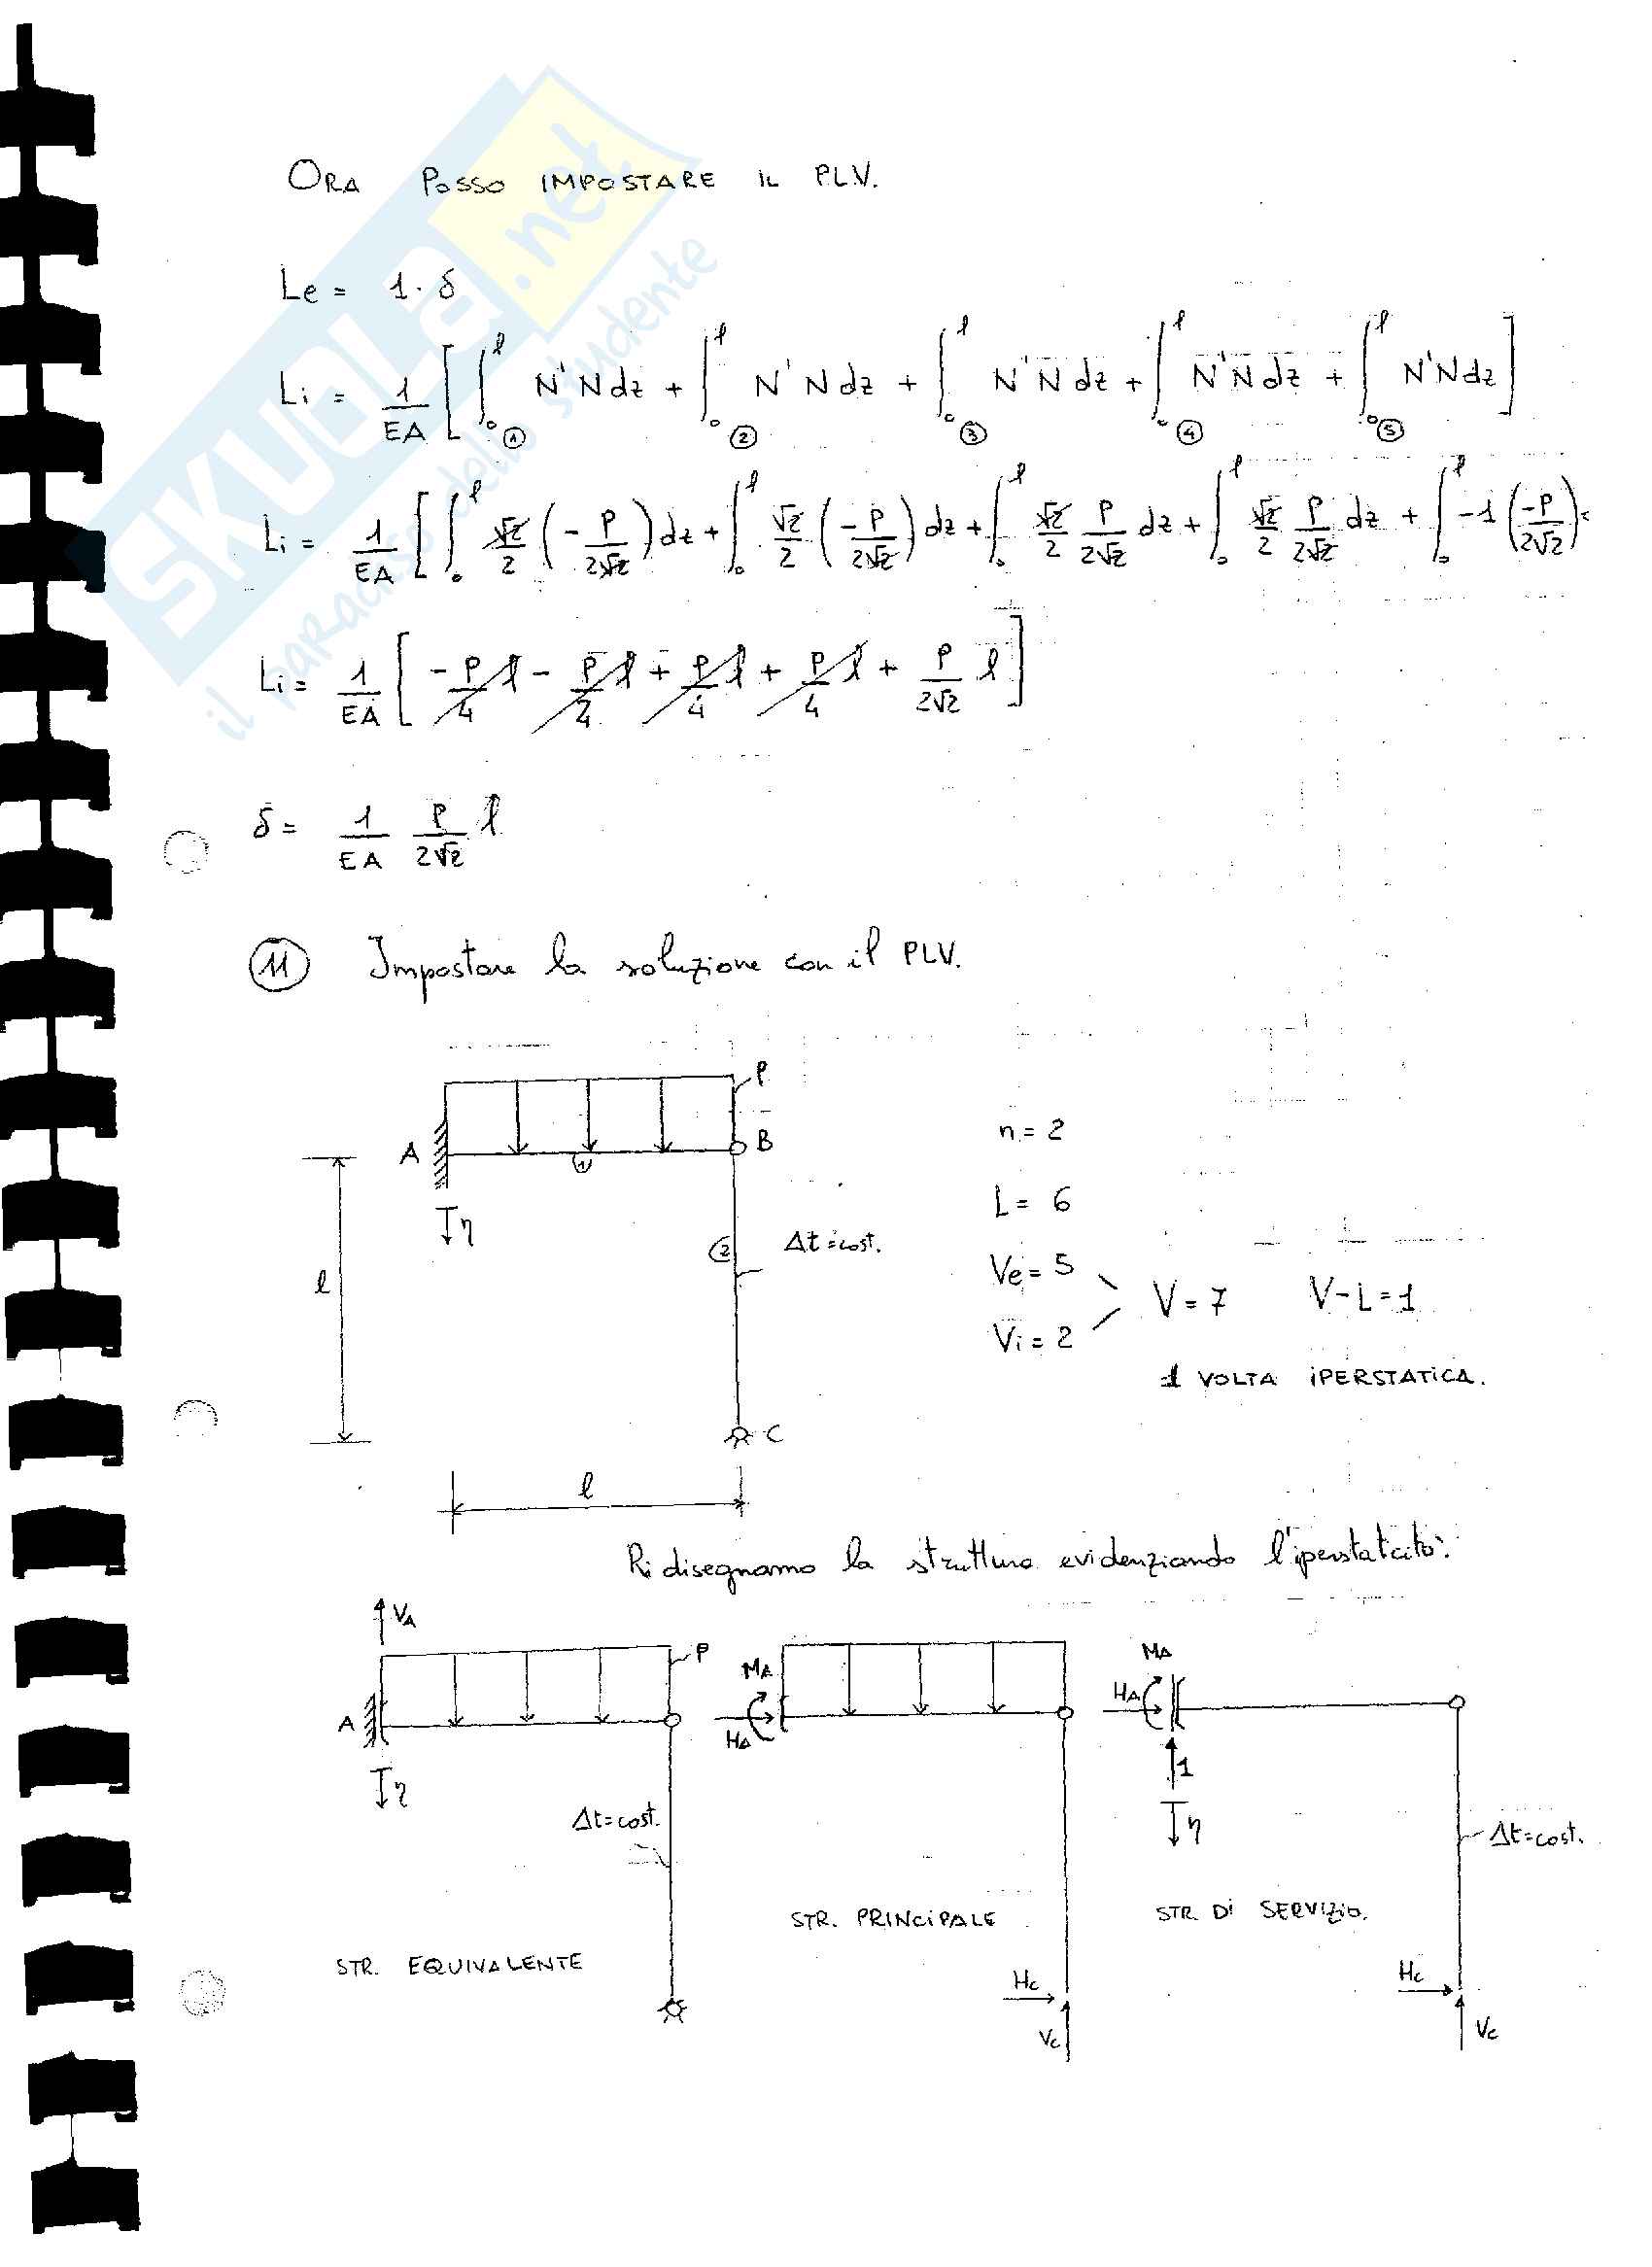 SKUOLA.net
il paradiso dello studente
ORA POSSO IMPOSTARE IL P.L.V.
Le = 1 · δ
Li = 1/EA [ ∫₀ˡ N'N dz + ∫₀ˡ N'N dz + ∫₀ˡ N'N dz + ∫₀ˡ N'N dz + ∫₀ˡ N'N dz ]
① ② ③ ④ ⑤
Li = 1/EA [ ∫₀ˡ √2/2 (-P/2√2) dz + ∫₀ˡ √2/2 (-P/2√2) dz + ∫₀ˡ √2/2 P/2√2 dz + ∫₀ˡ √2/2 P/2√2 dz + ∫₀ˡ -1 (-P/2√2) =
Li = 1/EA [ -P/4 l - P/4 l + P/4 l + P/4 l + P/2√2 l ]
δ = 1/EA P/2√2 l
⑪ Impostare la soluzione con il PLV.
P
A ① B
η
② Δt = cost.
l
C
l
n = 2
L = 6
Ve = 5
Vi = 2
V = 7 V-L = 1
1 VOLTA IPERSTATICA.
Ridisegnamo la struttura evidenziando l'iperstaticità:
VA
P
A
η
Δt = cost.
STR. EQUIVALENTE
MA
HA
STR. PRINCIPALE
Hc
Vc
MA
HA
1
η
Δt = cost.
STR. DI SERVIZIO.
Hc
Vc